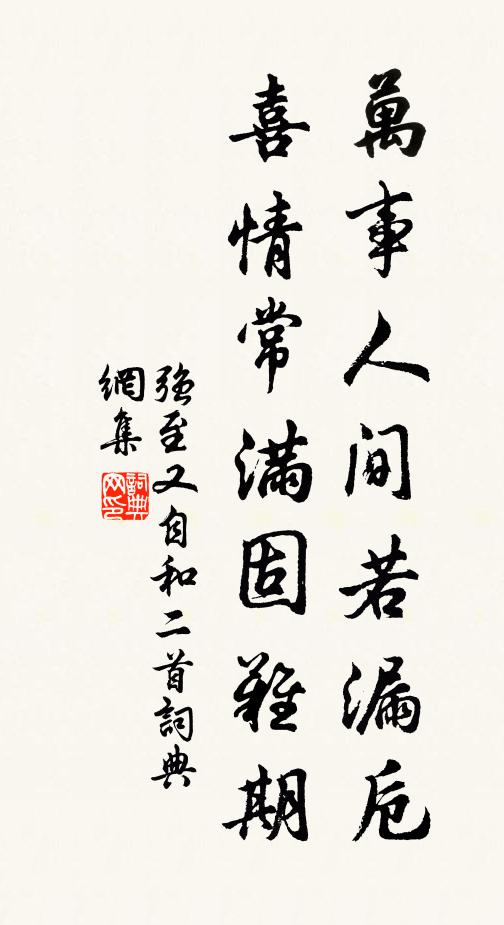 萬事人间若漏卮
喜情常滿固難期
強至又自和二首詞典
網集
詞典
网印